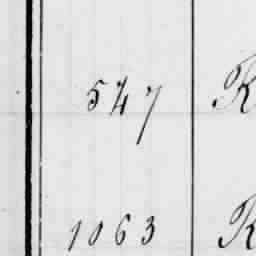 547 K
1063 K